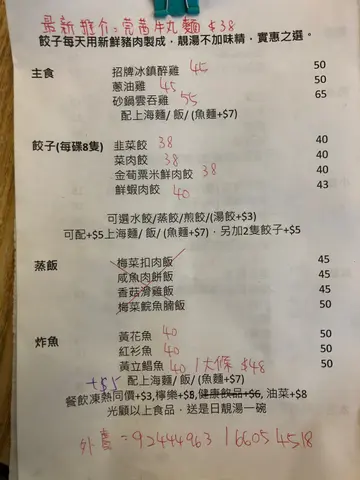 最新推介:芫茜牛丸麵 $38
餃子每天用新鮮豬肉製成，靚湯不加味精，實惠之選。
主食 招牌冰鎮醉雞 45 50
蔥油雞 45 50
砂鍋雲吞雞 55 65
配上海麵/ 飯/ (魚麵+$7)
餃子(每碟8隻) 韭菜餃 38 40
菜肉餃 38 40
金荀粟米鮮肉餃 38 40
鮮蝦肉餃 40 43
可選水餃/蒸餃/煎餃/(湯餃+$3)
可配+$5上海麵/ 飯/ (魚麵+$7)，另加2隻餃子+$5
蒸飯 梅菜扣肉飯 45
咸魚肉餅飯 45
香菇滑雞飯 45
梅菜鯇魚腩飯 50
炸魚 黃花魚 40 50
紅衫魚 40 50
黃立鯧魚 40 /大條 $48 50
+$5 配上海麵/ 飯/ (魚麵+$7)
餐飲凍熱同價+$3,檸樂+$8,健康飲品+$6, 油菜+$8
光顧以上食品，送是日靚湯一碗
外賣:92444963 / 66054518